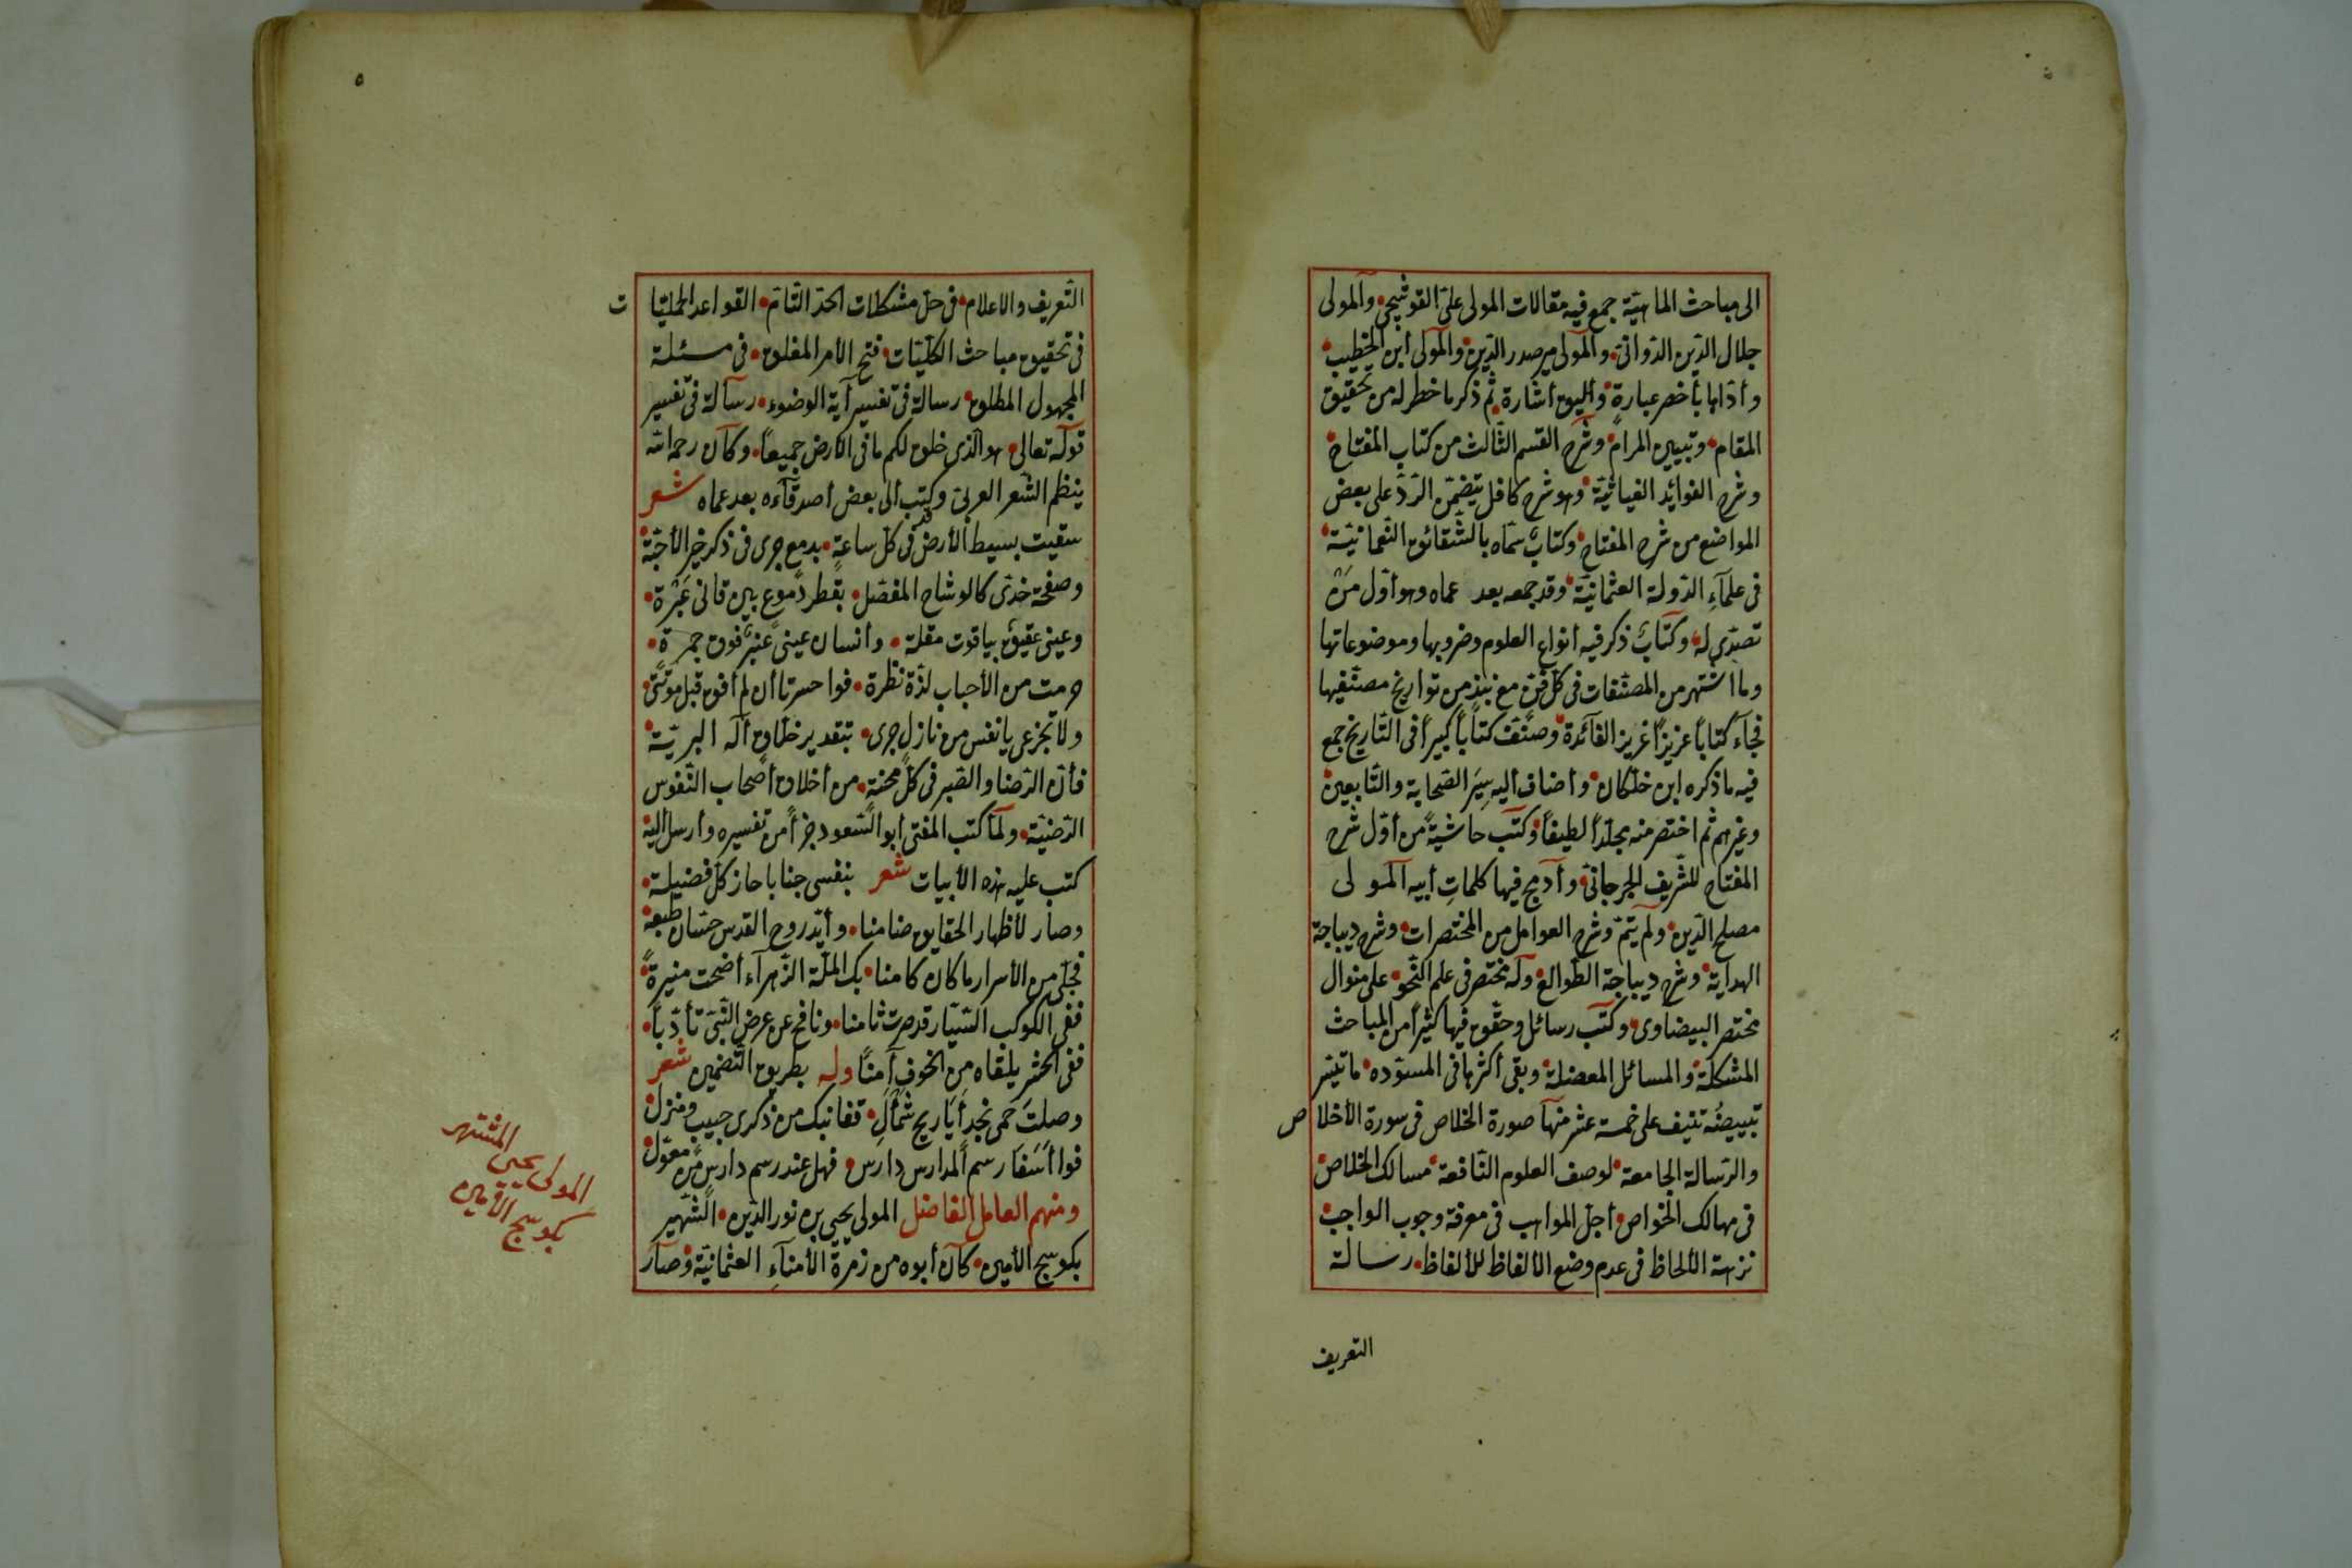 الى مباحث الماهيّة جمع فيه مقالات المولى علىّ القوشجى والمولى
جلال الدّين الدّوانى والمولى مير صدر الدّين والمولى ابن الخطيب
وأدّاها بأخصر عبارة وأليق اشارة ثم ذكر ما خطر له من تحقيق
المقام وتبيين المرام وشرح القسم الثّالث من كتاب المفتاح
وشرح الفوائد الغياثيّة وهو شرح كافل يتضمّن الرّدّ على بعض
المواضع من شرح المفتاح وكتاب سمّاه بالشّقائق النّعمانيّة
فى علمآء الدّولة العثمانيّة وقد جمعه بعد عماه وهو أوّل من
تصدّى له وكتاب ذكر فيه أنواع العلوم وضروبها وموضوعاتها
وما اشتهر من المصنّفات فى كلّ فنّ مع نبذ من تواريخ مصنّفيها
فجآء كتاباً عزيزاً غزير الفآئدة وصنّف كتاباً كبيراً فى التّاريخ جمع
فيه ما ذكره ابن خلّكان وأضاف أليه سير الصّحابة والتّابعين
وغيرهم ثم اختصر منه مجلّداً لطيفاً وكتب حاشية من أوّل شرح
المفتاح للشّريف الجرجانىّ وأدمج فيها كلمات أبيه المولى
مصلح الدّين ولم يتمّ وشرح العوامل من المختصرات وشرح ديباجة
الهداية وشرح ديباجة الطّوالع وله مختصر فى علم النّحو على منوال
مختصر البيضاوى وكتب رسائل وحقّق فيها كثيراً من المباحث
المشكلة والمسائل المعضلة وبقى أكثرها فى المسوّده ما تيسّر
تبييضه تنيف على خمسة عشر منها صورة الخلاص فى سورة الأخلا ص
والرّسالة الجامعة لوصف العلوم النّافعة مسالك الخلاص
فى مهالك الخواص أجلّ المواهب فى معرفة وجوب الواجب
نزهة الألحاظ فى عدم وضع الألفاظ للألفاظ رسالة
التعريف
٥
التّعريف والاعلام فى حلّ مشكلات الحدّ التّامّ القواعد الجليّا ت
فى تحقيق مباحث الكلّيّات فتح الأمر المغلق فى مسئلة
المجهول المطلق رسالة فى تفسير آية الوضوء رسالة فى تفسير
قوله تعالى هو الّذى خلق لكم ما فى الأرض جميعاً وكان رحمه الله
ينظم الشّعر العربىّ وكتب الى بعض أصدقآءه بعد عماه شعر
سقيت بسيط الأرض فى كلّ ساعة بدمع جرى فى ذكر خير الأحبّة
وصفحة خدّى كالوشاح المفصّل بقطر دموع بين قانى عبرة
وعينى عقيق بياقوت مقلة وأنسان عينى عنبر فوق جمرة
حرمت من الأحباب لذّة نظرة فوا حسرتا أن لم أفق قبل موتتى
ولا تجزعى يا نفس من نازل جرى بتقدير خلّاق أله البريّة
فأنّ الرّضا والصّبر فى كلّ محنة من أخلاق أصحاب النّفوس
الرّضيّة ولمّا كتب المفتى أبو السّعود جزأً من تفسيره وأرسل أليه
كتب عليه هذه الأبيات شعر بنفسى جنابا حاز كلّ فضيلة
وصار لأظهار الحقايق ضامنا وأيّد روح القدس حسّان طبعه
فجلّى من الأسرار ما كان كامنا بك الملّة الزّهرآء أضحت منيرة
ففى الكوكب السّيّار قد صرت ثامنا ونافح عن عرض النّبىّ تأدّباً
ففى الحشر يلقاه من الخوف آمناً وله بطريق التّضمين شعر
وصلت حمى نجد أيا ريح شمأل قفا نبك من ذكرى حبيب ومنزل
فوا أسفا رسم المدارس دارس فهل عند رسم دارس من معوّل
ومنهم العامل الفاضل المولى يحيى بن نور الدّين الشّهير
بكوسج الأمين كان أبوه من زمرة الأمنآء العثمانيّة وصار
المشتهر
المولى يحيى
بكوسج الأمين